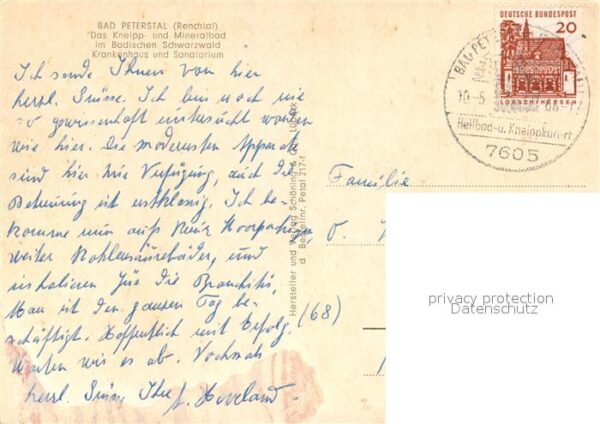 BAD PETERSTAL (Renchtal)
Das Kneipp- und Mineralbad
im Badischen Schwarzwald
Krankenhaus und Sanatorium
Ich sende Ihnen von hier
herzl. Grüsse. Ich bin noch nie
so gewissenhaft untersucht worden
wie hier. Die modernsten Apparate
sind hier zur Verfügung, auch die
Betreuung ist erstklassig. Ich be-
komme nun aufs
weiter Kohlensäurebäder, und
inhalieren für die Bronchitis,
Man ist den ganzen Tag be-
schäftigt. Hoffentlich mit Erfolg.
Warten wir es ab. Nochmals
herzl. Grüsse Ihre
(68)
Hersteller und Verlag Schöning &
Bestellnr. Petal 217
DEUTSCHE BUNDESPOST
20
LORSCH/HESSEN
BAD PETERSTAL
Heilbad- u. Kneippkurort
7605
Familie
privacy protection
Datenschutz